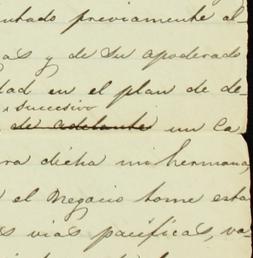 ntado previamente al-
gas y de su apoderado
dad en el plan de de-
sucesivo
de adelante un Ca
ra dicha mi hermana,
el Negocio tome esta
s vias pacificas, va